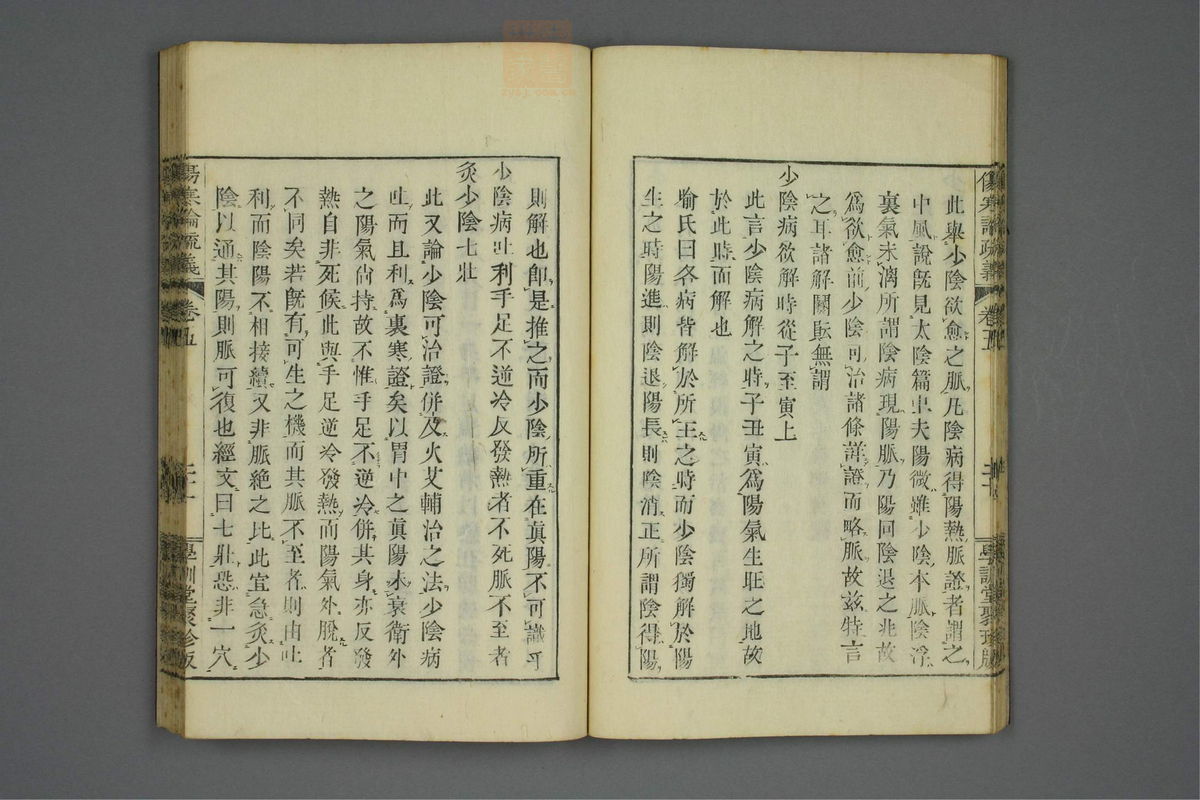 傷寒論疏義
卷五
學訓堂聚珍版
此舉少陰欲愈之脈凡陰病得陽熱脈證者謂之
中風說既見太陰篇中夫陽微雖少陰本脈陰浮
裏氣未漓所謂陰病現陽脈乃陽回陰退之兆故
爲欲愈前少陰可治諸條詳證而略脈故玆特言
之耳諸解闕眐無謂
少陰病欲解時從子至寅上
此言少陰病解之時子丑寅爲陽氣生旺之地故
於此時而解也
喻氏曰各病皆解於所王之時而少陰獨解於陽
生之時陽進則陰退陽長則陰消正所謂陰得陽
則解也卽是推之而少陰所重在眞陽不可識乎
少陰病吐利手足不逆冷反發熱者不死脈不至者
灸少陰七壯
此又論少陰可治證併及火艾輔治之法少陰病
吐而且利爲裏寒證矣以胃中之眞陽未衰衛外
之陽氣尙持故不惟手足不逆冷併其身亦反發
熱自非死候此與手足逆冷發熱而陽氣外脫者
不同矣若既有可生之機而其脈不至者則由吐
利而陰陽不相接續又非脈絕之比此宜急灸少
陰以通其陽則脈可復也經文曰七壯恐非一穴
傷寒論疏義
卷五
二十一
學訓堂聚珍版